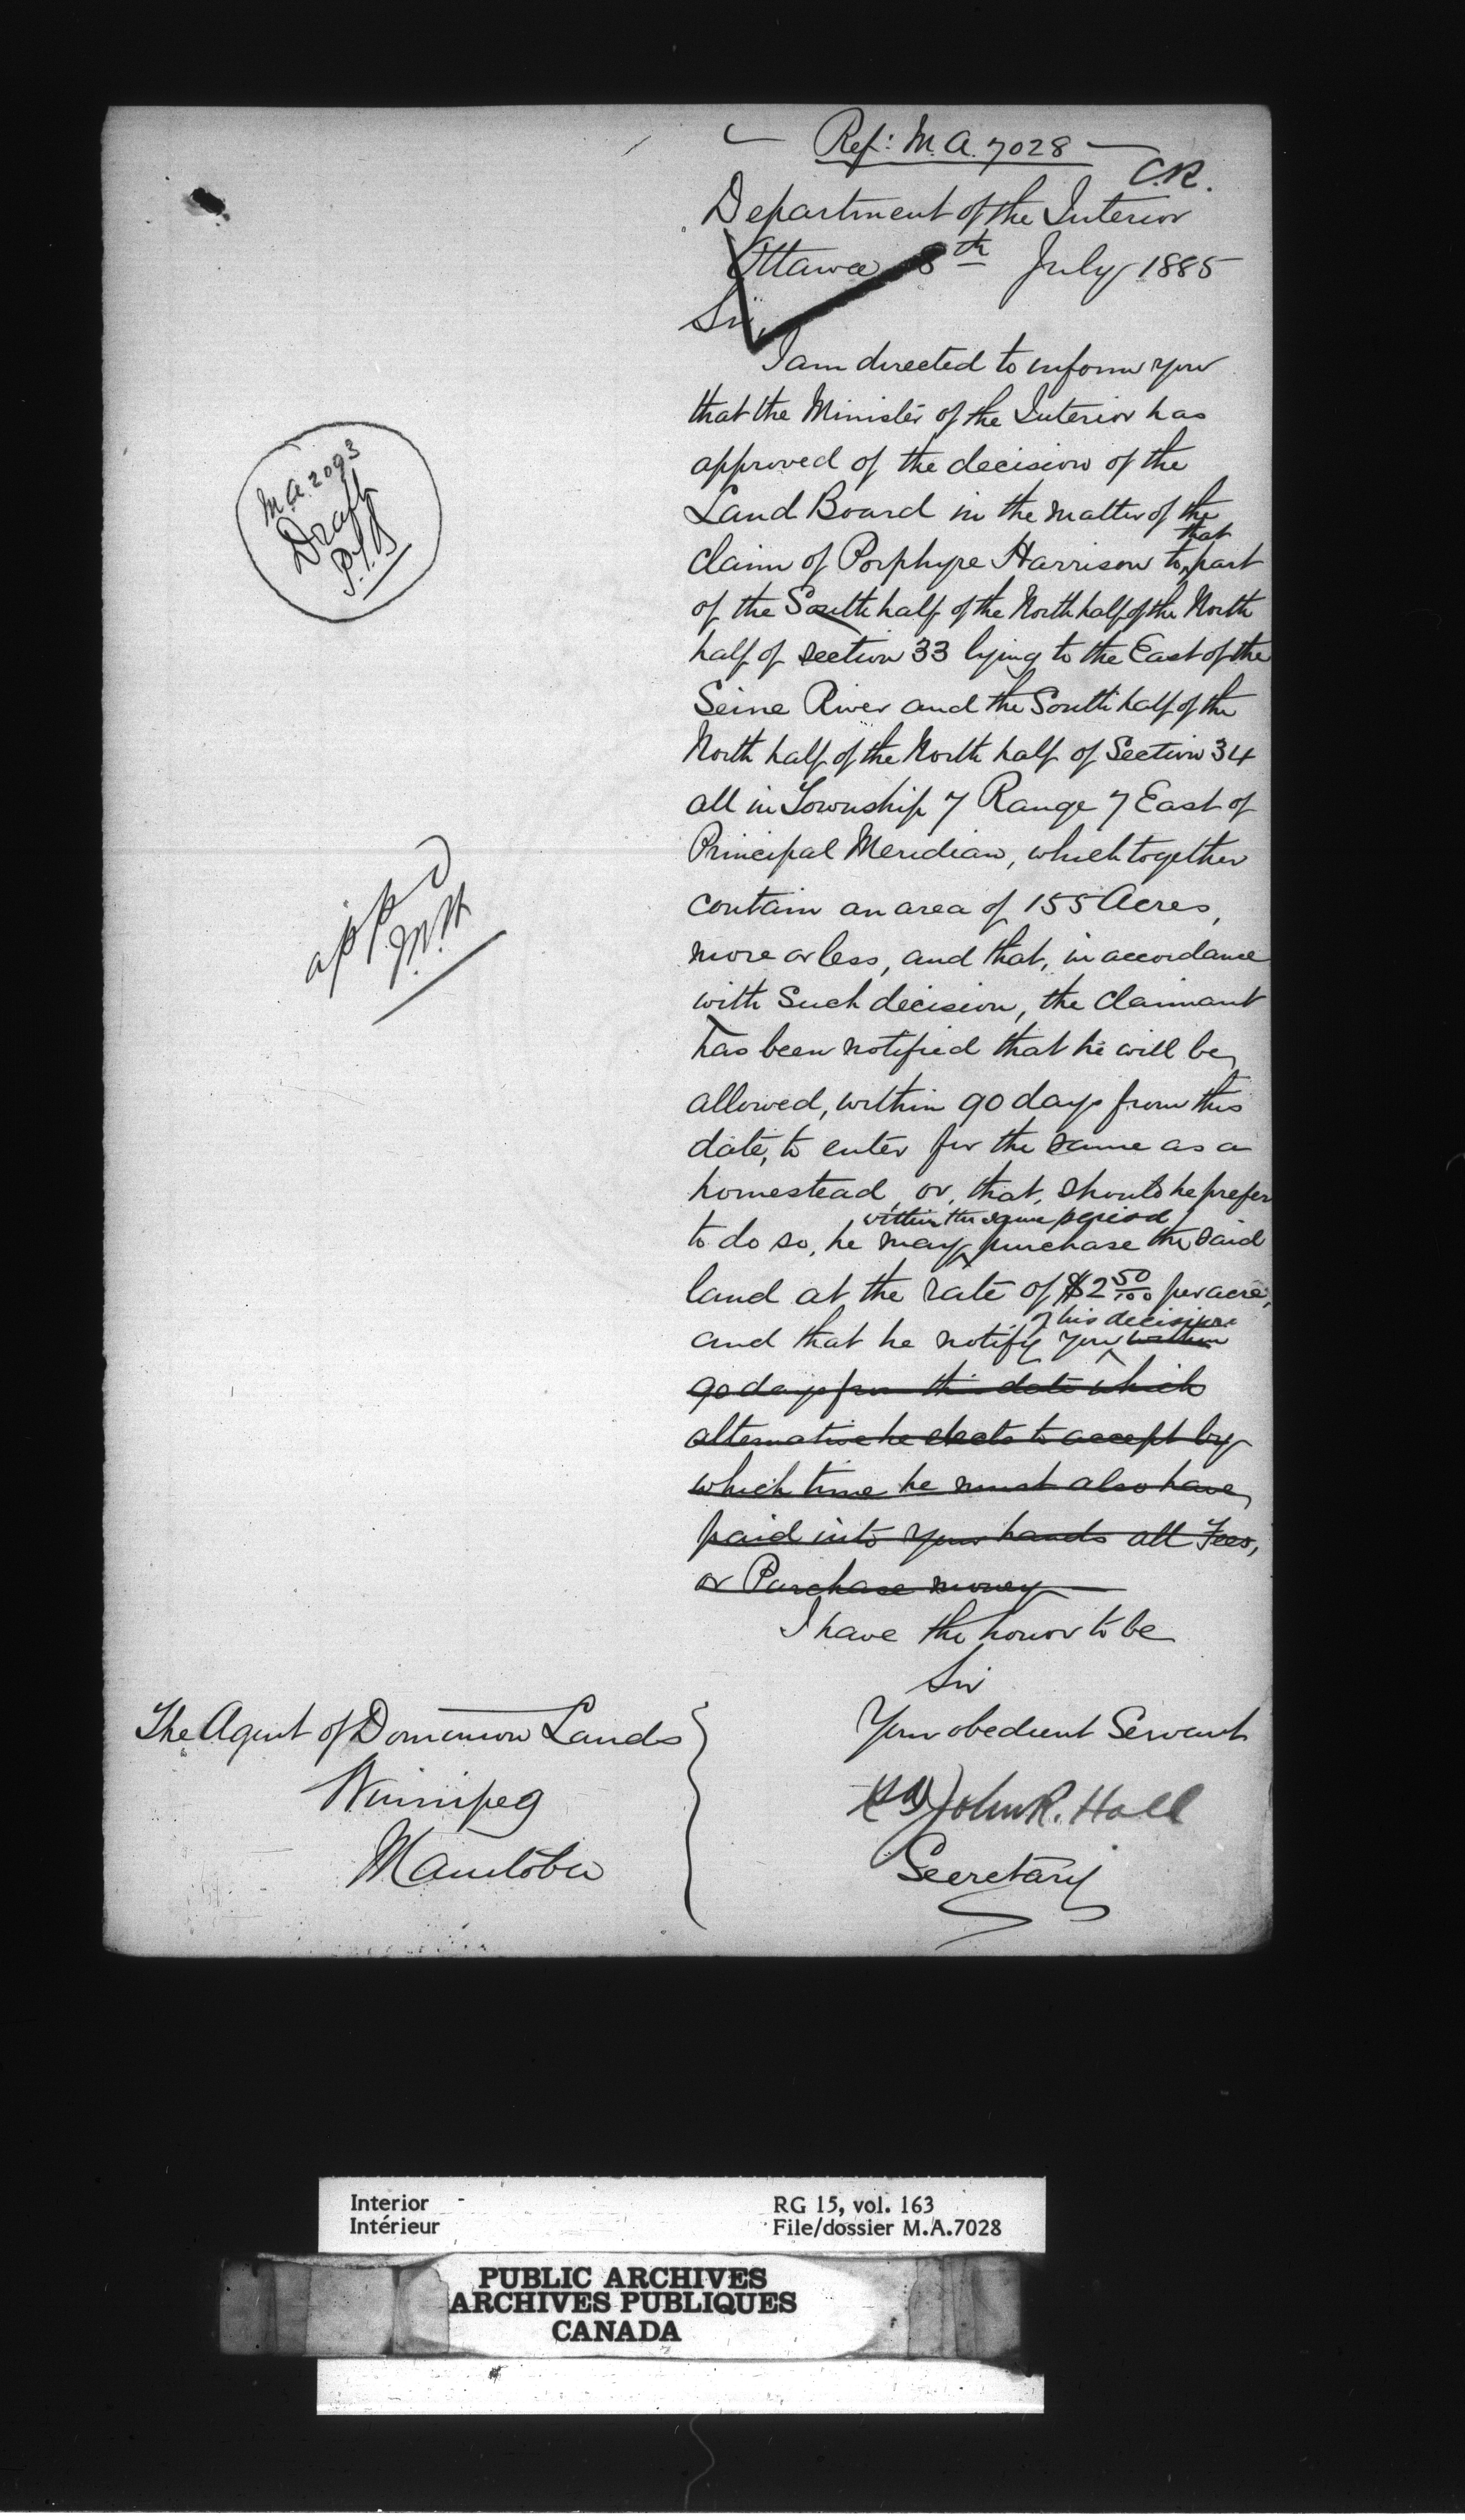 Ref: M.A. 7028
C.R.
Department of the Interior
Ottawa 8th July 1885
Sir,
I am directed to inform you
that the Minister of the Interior has
approved of the decision of the
Land Board in the matter of the
that
claim of Porphyre Harrison to part
of the South half of the North half of the North
half of section 33 lying to the East of the
Seine River and the South half of the
North half of the North half of Section 34
all in Township 7 Range 7 East of
Principal Meridian, which together
contain an area of 155 Acres,
more or less, and that, in accordance
with such decision, the claimant
has been notified that he will be
allowed, within 90 days from this
date, to enter for the same as a
homestead, or, that, should he prefer
within the same period
to do so, he may purchase the said
land at the rate of $2 50/100 per acre,
of his decision
and that he notify you within
90 days from this date which
alternative he elects to accept by
which time he must also have
paid into your hands all Fees,
or Purchase money
I have the honor to be
Sir
Your obedient Servant
(sd) John R. Hall
Secretary
The Agent of Dominion Lands
Winnipeg
Manitoba
M.A. 2093
Draft
appd
M.H
Interior
Intérieur
RG 15, vol. 163
File/dossier M.A.7028
PUBLIC ARCHIVES
ARCHIVES PUBLIQUES
CANADA